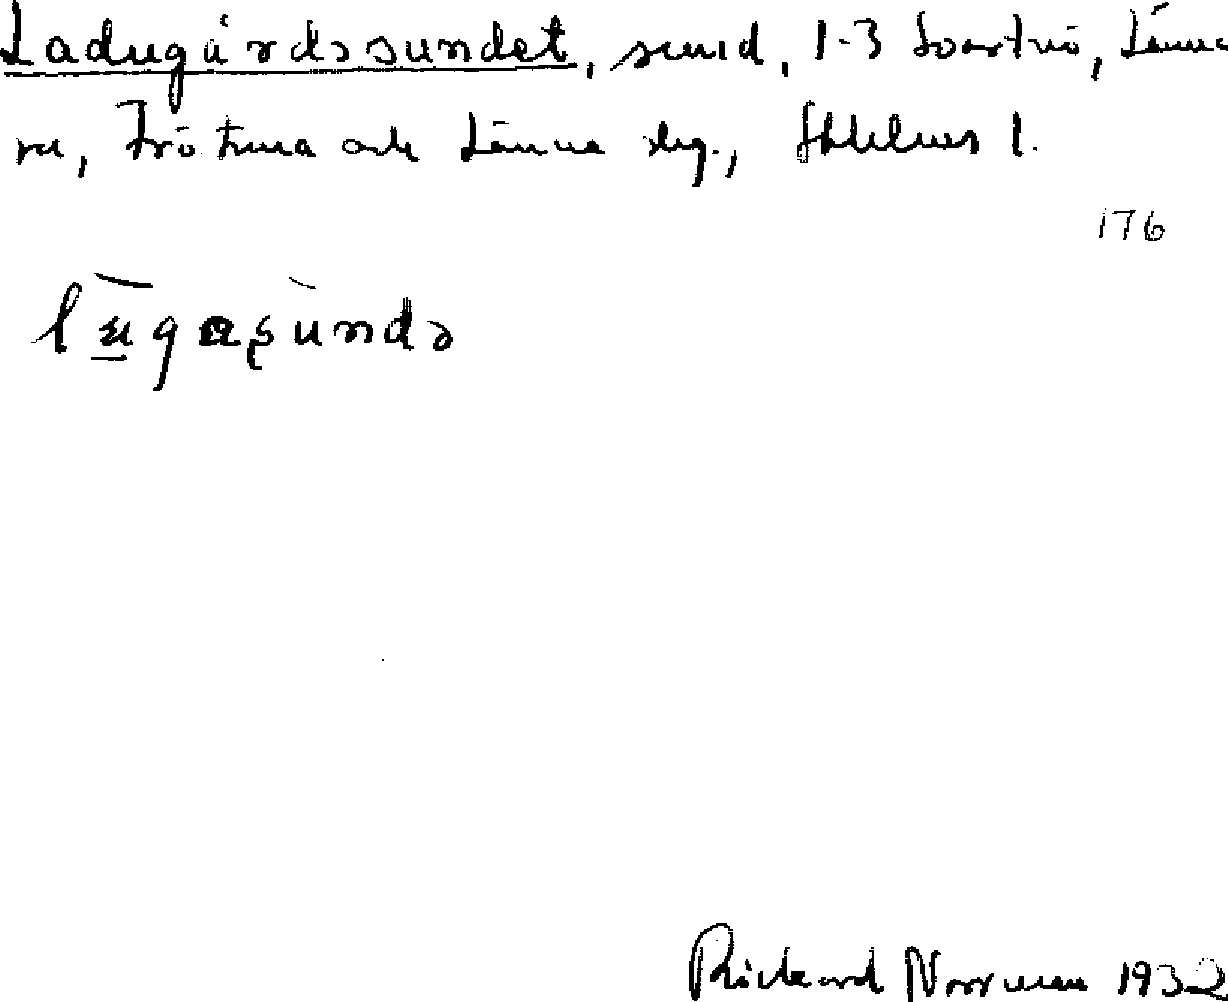 Ladugårdssundet, sund, 1-3 Svartnö, Länna
sn, Frötuna och Länna slg., Sthlms l.
176
Rickard Norrman 1932